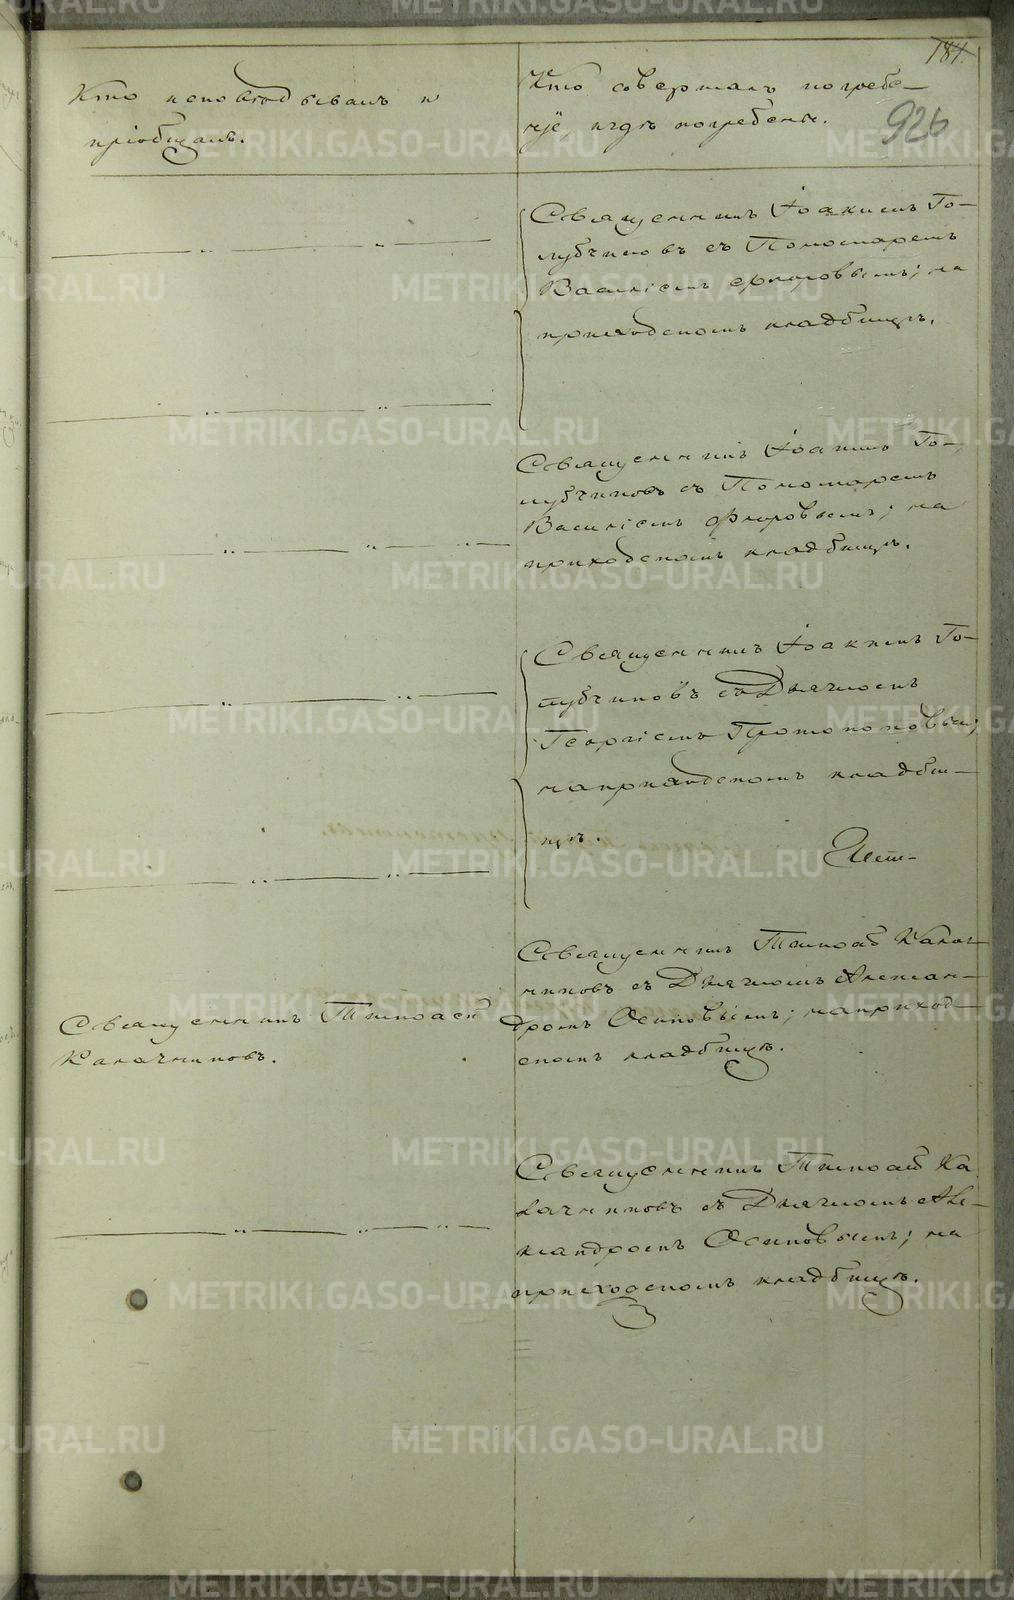 184.
926
Кто исповѣдывалъ и
пріобщалъ.
Кто совершалъ погребе-
ніе, и гдѣ погребены.
Священникъ Іоакимъ Го-
лубчиковъ съ Пономаремъ
Василіемъ Флоровымъ; на
приходскомъ кладбищѣ.
Священникъ Іоакимъ Го-
лубчиковъ съ Пономаремъ
Василіемъ Флоровымъ; на
приходскомъ кладбищѣ.
Священникъ Іоакимъ Го-
лубчиковъ съ Дьячкомъ
Георгіемъ Протопоповым;
на приходскомъ кладби-
щѣ.
Священникъ Тимоѳей
Калачниковъ.
Священникъ Тимоѳей Калач-
никовъ съ Дьячкомъ Алексан-
дромъ Осиповымъ; на приход-
скомъ кладбищѣ.
Священникъ Тимоѳей Ка
лачниковъ съ Дьячкомъ Але-
ксандромъ Осиповымъ; на
приходскомъ кладбищѣ.
METRIKI.GASO-URAL.RU